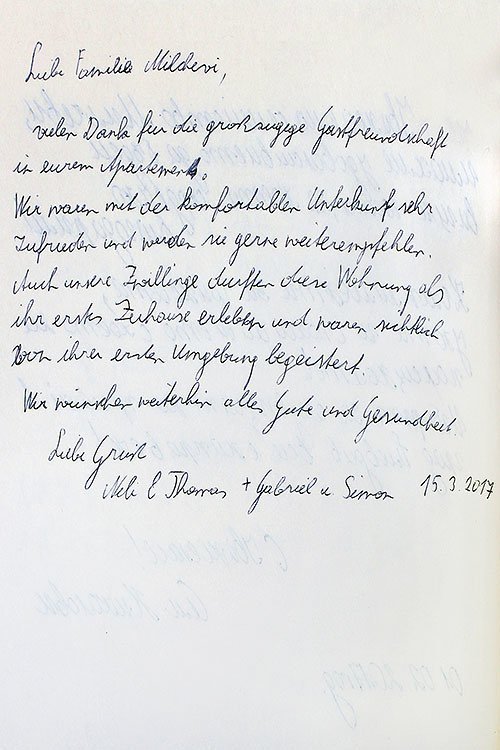 Liebe Familie Milchevi,
vielen Dank für die großzügige Gastfreundschaft
in eurem Apartement.
Wir waren mit der komfortablen Unterkunft sehr
zufrieden und werden sie gerne weiterempfehlen.
Auch unsere Zwillinge durften diese Wohnung als
ihr erstes Zuhause erleben und waren sichtlich
von ihrer ersten Umgebung begeistert.
Wir wünschen weiterhin alles Gute und Gesundheit.
Liebe Grüße
& Thomas + Gabriel u. Simon 15.3.2017